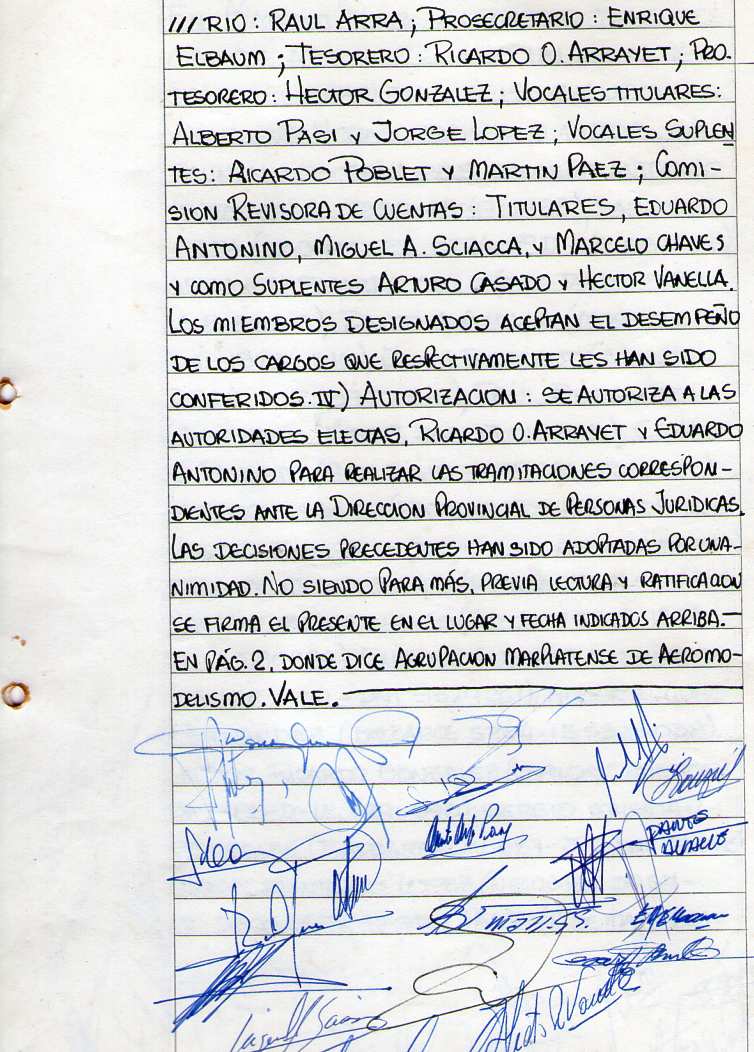 /// RIO: RAUL ARRA; PROSECRETARIO: ENRIQUE
ELBAUM; TESORERO: RICARDO O. ARRAYET; PRO-
TESORERO: HECTOR GONZALEZ; VOCALES TITULARES:
ALBERTO PASI Y JORGE LOPEZ; VOCALES SUPLEN
TES: RICARDO POBLET Y MARTIN PAEZ; COMI-
SION REVISORA DE CUENTAS: TITULARES, EDUARDO
ANTONINO, MIGUEL A. SCIACCA, Y MARCELO CHAVES
Y COMO SUPLENTES ARTURO CASADO Y HECTOR VANELLA.
LOS MIEMBROS DESIGNADOS ACEPTAN EL DESEMPEÑO
DE LOS CARGOS QUE RESPECTIVAMENTE LES HAN SIDO
CONFERIDOS. IV) AUTORIZACION: SE AUTORIZA A LAS
AUTORIDADES ELECTAS, RICARDO O. ARRAYET Y EDUARDO
ANTONINO PARA REALIZAR LAS TRAMITACIONES CORRESPON-
DIENTES ANTE LA DIRECCION PROVINCIAL DE PERSONAS JURIDICAS.
LAS DECISIONES PRECEDENTES HAN SIDO ADOPTADAS POR UNA-
NIMIDAD. NO SIENDO PARA MÁS, PREVIA LECTURA Y RATIFICACION
SE FIRMA EL PRESENTE EN EL LUGAR Y FECHA INDICADOS ARRIBA.-
EN PÁG. 2, DONDE DICE AGRUPACION MARPLATENSE DE AEROMO-
DELISMO. VALE.